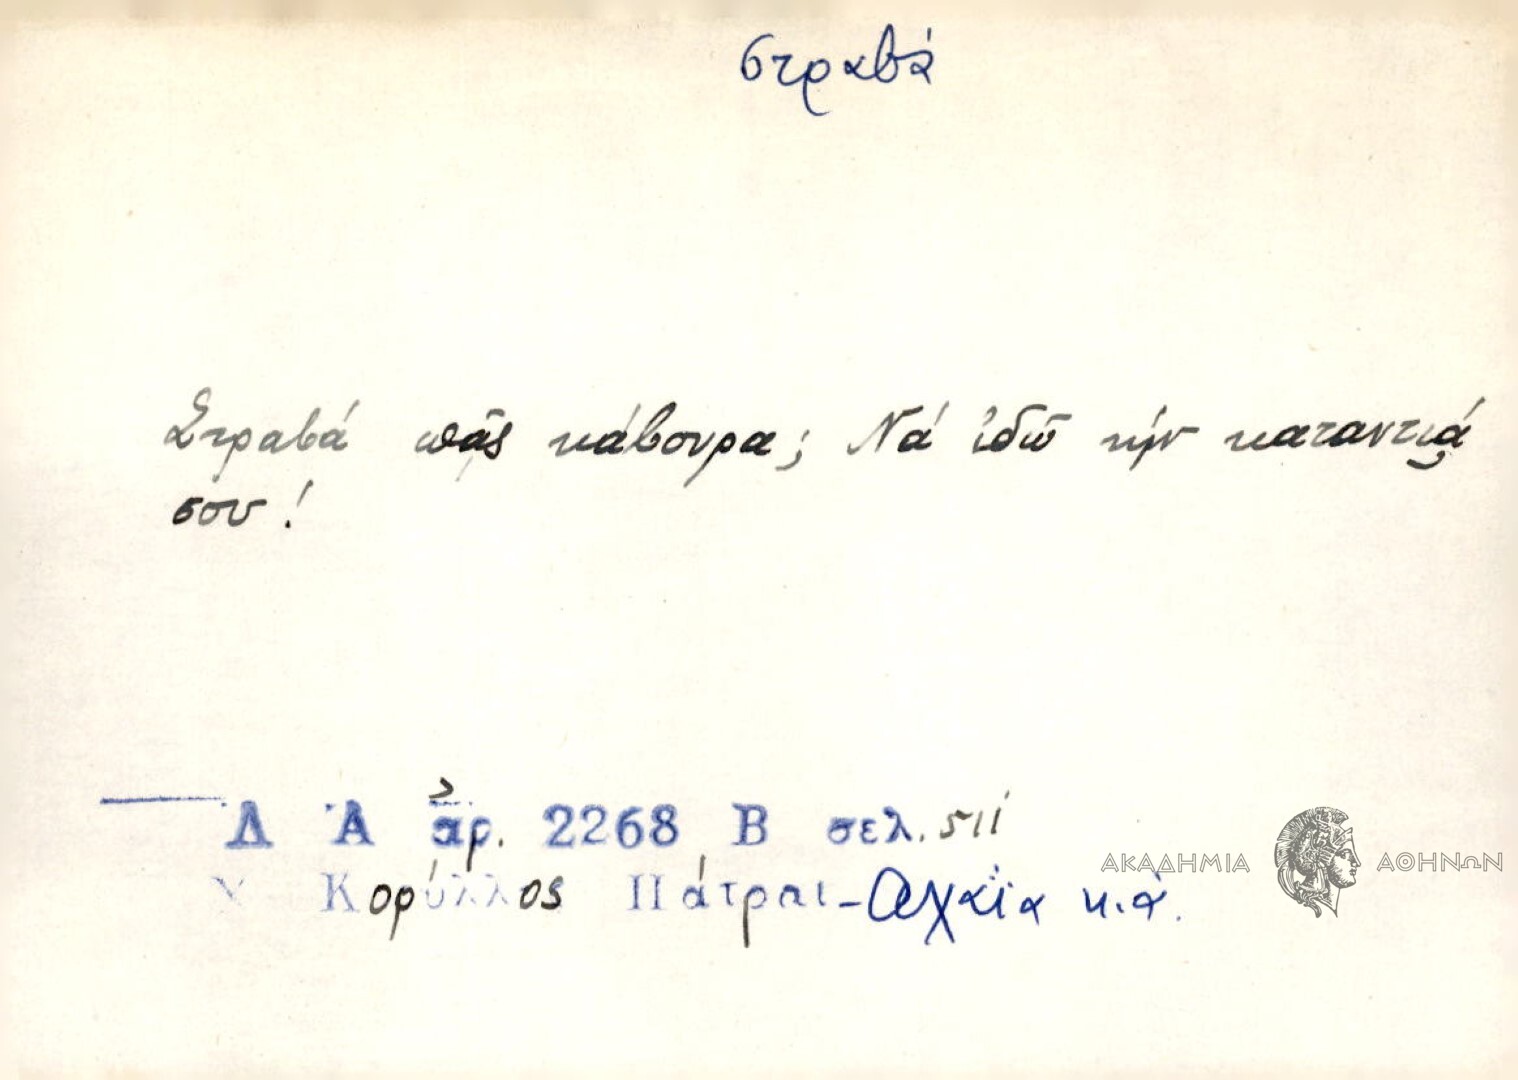 στραβά
Στραβά πᾶς κάβουρα; Νά ἰδῶ τήν καταντιά
σου!
Λ Ἀ ἀρ. 2268 Β σελ. 511
Χ Κορύλλος Πάτραι - Ἀχαΐα κ.ἀ.
ΑΚΑΔΗΜΙΑ ΑΘΗΝΩΝ